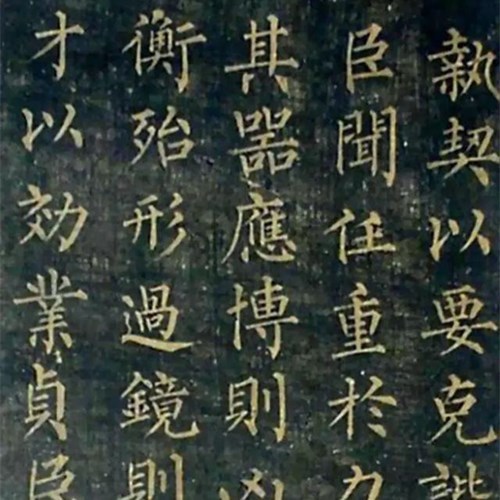 執契以要克諧
臣聞任重於力
其器應博則凶
衡殆形過鏡則
才以効業貞臣